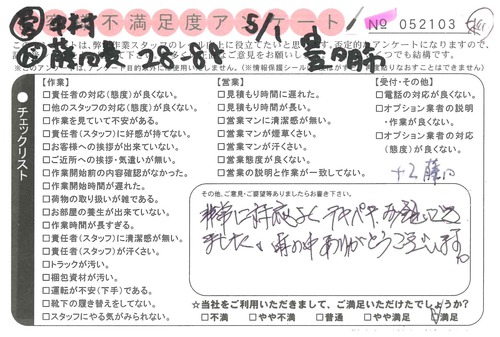 お客様不満足度アンケート
No 052103
㊂ 中村 5/1
28-8件 豊明市
このアンケートは、弊社作業スタッフのレベル向上に役立てたいと思います。否定的なアンケートになりますので、
※このアンケートは、アンケート目的以外に使用しません。(※情報保護シールをはがすことはできません)
チェックリスト
【作業】
□責任者の対応(態度)が良くない。
□他のスタッフの対応(態度)が良くない。
□作業を見ていて不安がある。
□責任者(スタッフ)に好感が持てない。
□お客様への挨拶が出来ていない。
□ご近所への挨拶・気遣いが無い。
□作業開始前の内容確認がなかった。
□作業開始時間が遅れた。
□荷物の取り扱いが雑である。
□お部屋の養生が出来ていない。
□作業時間が長すぎる。
□責任者(スタッフ)に清潔感が無い。
□責任者(スタッフ)が汗くさい。
□トラックが汚い。
□梱包資材が汚い。
□運転が不安(下手)である。
□靴下の履き替えをしてない。
□スタッフにやる気がみられない。
【営業】
□見積もり時間に遅れた。
□見積もり時間が長い。
□営業マンに清潔感が無い。
□営業マンが煙草くさい。
□営業マンが汗くさい。
□営業態度が良くない。
□営業の説明と作業が一致してない。
【受付・その他】
□電話の対応が良くない。
□オプション業者の説明
・作業が良くない。
□オプション業者の対応
(態度)が良くない。
その他、ご意見・ご要望等ありましたらお書き下さい。
非常に対応よく テキパキ お運びいただき
ました。雨の中ありがとうございます。
☆当社をご利用いただきまして、ご満足いただけたでしょうか?
□不満 □やや不満 □普通 □やや満足 □満足